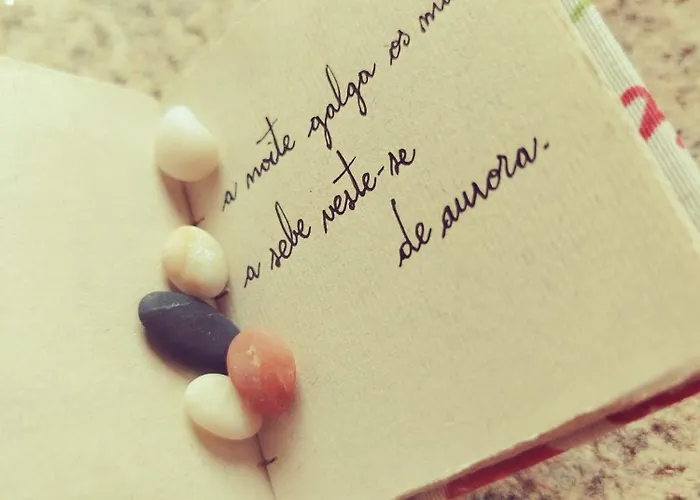 a noite galga os
a sebe veste-se
de aurora.
2